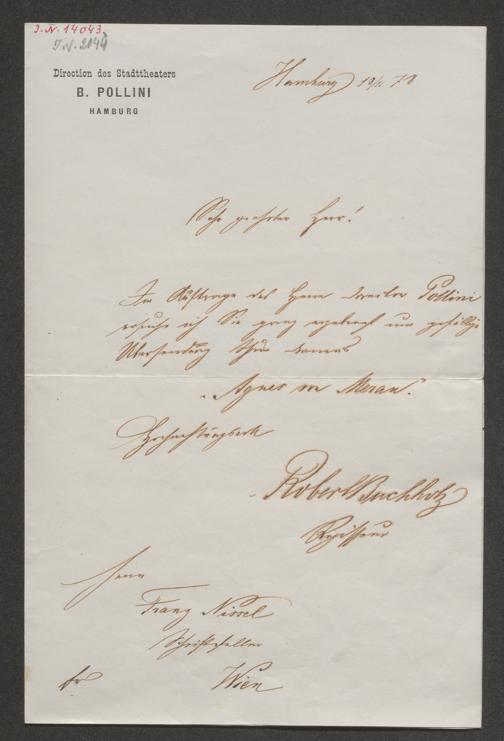 J.N. 14043
J.N. 2144
Direction des Stadttheaters
B. POLLINI
HAMBURG
Hamburg 18/11 78
Sehr geehrter Herr!
Im Auftrage des Herrn Direktor Pollini
ersuche ich Sie ganz ergebenst um gefällige
Übersendung Ihres Dramas
"Agnes von Meran".
Hochachtungsvoll
Robert Buchholz
Regisseur
Herrn
Franz Nissel
Schriftsteller
Wien